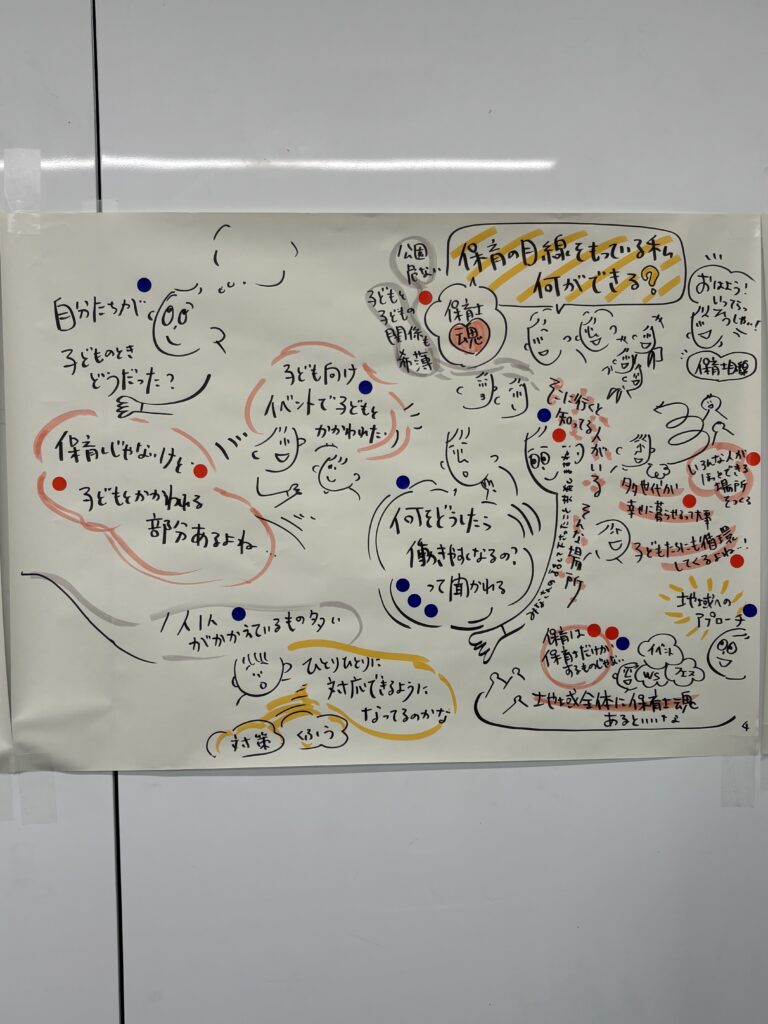 自分たちが
子どものとき
どうだった?
保育じゃないけど
子どもとかかわれる
部分あるよね…
子ども向け
イベントで子どもと
かかわれたい
1人1人
がかかえているもの多い
ひとりひとりに
対応できるように
なってるのかな
対策
くふう
公園
危ない
子どもと
子どもの
関係も
希薄
保育士
魂
保育の目線をもっている私
何ができる?
おはよう!
いってらっ
しゃーい!
何をどうしたら
働きやすくなるの?
って聞かれる
そこに行くと
知ってる人がいる
そんな場所
いろんな人が
ほっとできる
場所
をつくる
多世代が
幸せに暮らせるって大事
子どもたちにも循環
してくるよね…!
地域への
アプローチ
保育は
保育士だけが
するものじゃない
イベント
WS
フェス
地域全体に保育士魂
あるといいなぁ
4